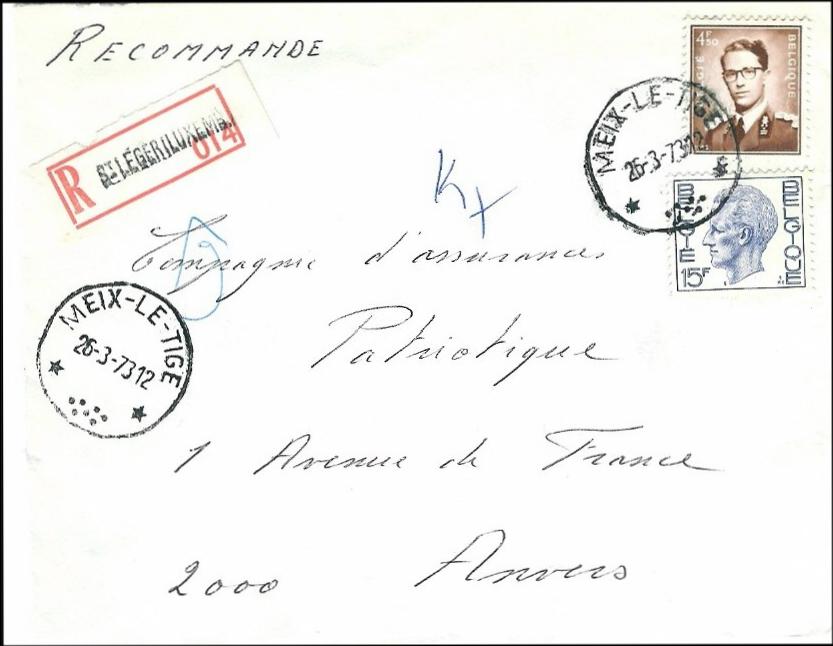 RECOMMANDE
4F50
BELGIQUE
R
St LEGER(LUXEMB.)
014
MEIX-LE-TIGE
26-3-73 12
BELGIE
BELGIQUE
15F
Compagnie d'assurances
Patriotique
MEIX-LE-TIGE
26-3-73 12
1 Avenue de France
2000 Anvers